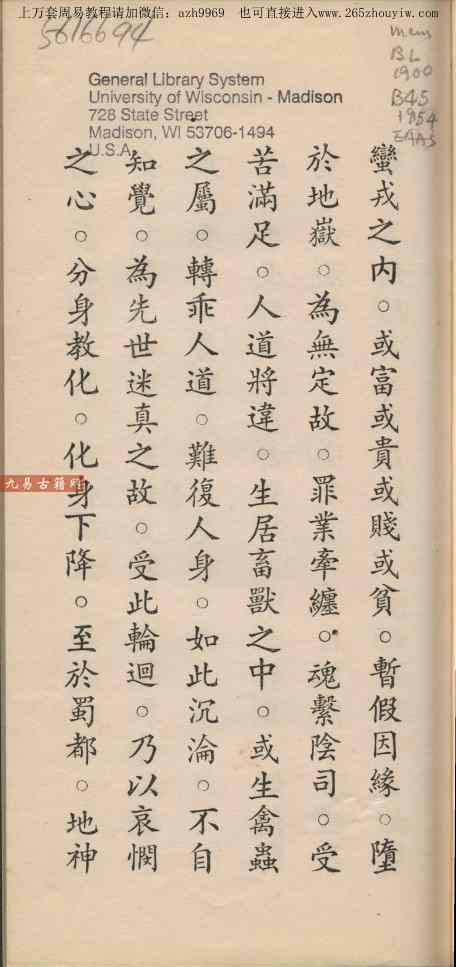 上万套周易教程请加微信：azh9969 也可直接进入www.265zhouyiw.com
5616694
Mem
BL
1900
B45
1954
EAAS
General Library System
University of Wisconsin - Madison
728 State Street
Madison, WI 53706-1494
U.S.A.
蠻戎之内。或富或貴或賤或貧。暫假因緣。墮
於地嶽。為無定故。罪業牽纏。魂繫陰司。受
苦滿足。人道將違。生居畜獸之中。或生禽蟲
之屬。轉乖人道。難復人身。如此沉淪。不自
知覺。為先世迷真之故。受此輪迴。乃以哀憫
之心。分身教化。化身下降。至於蜀都。地神
九易古籍网